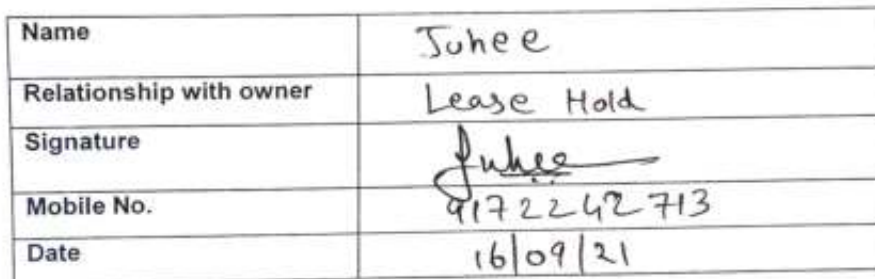 Name Juhee
Relationship with owner Lease Hold
Signature Juhee
Mobile No. 9172242713
Date 16/09/21